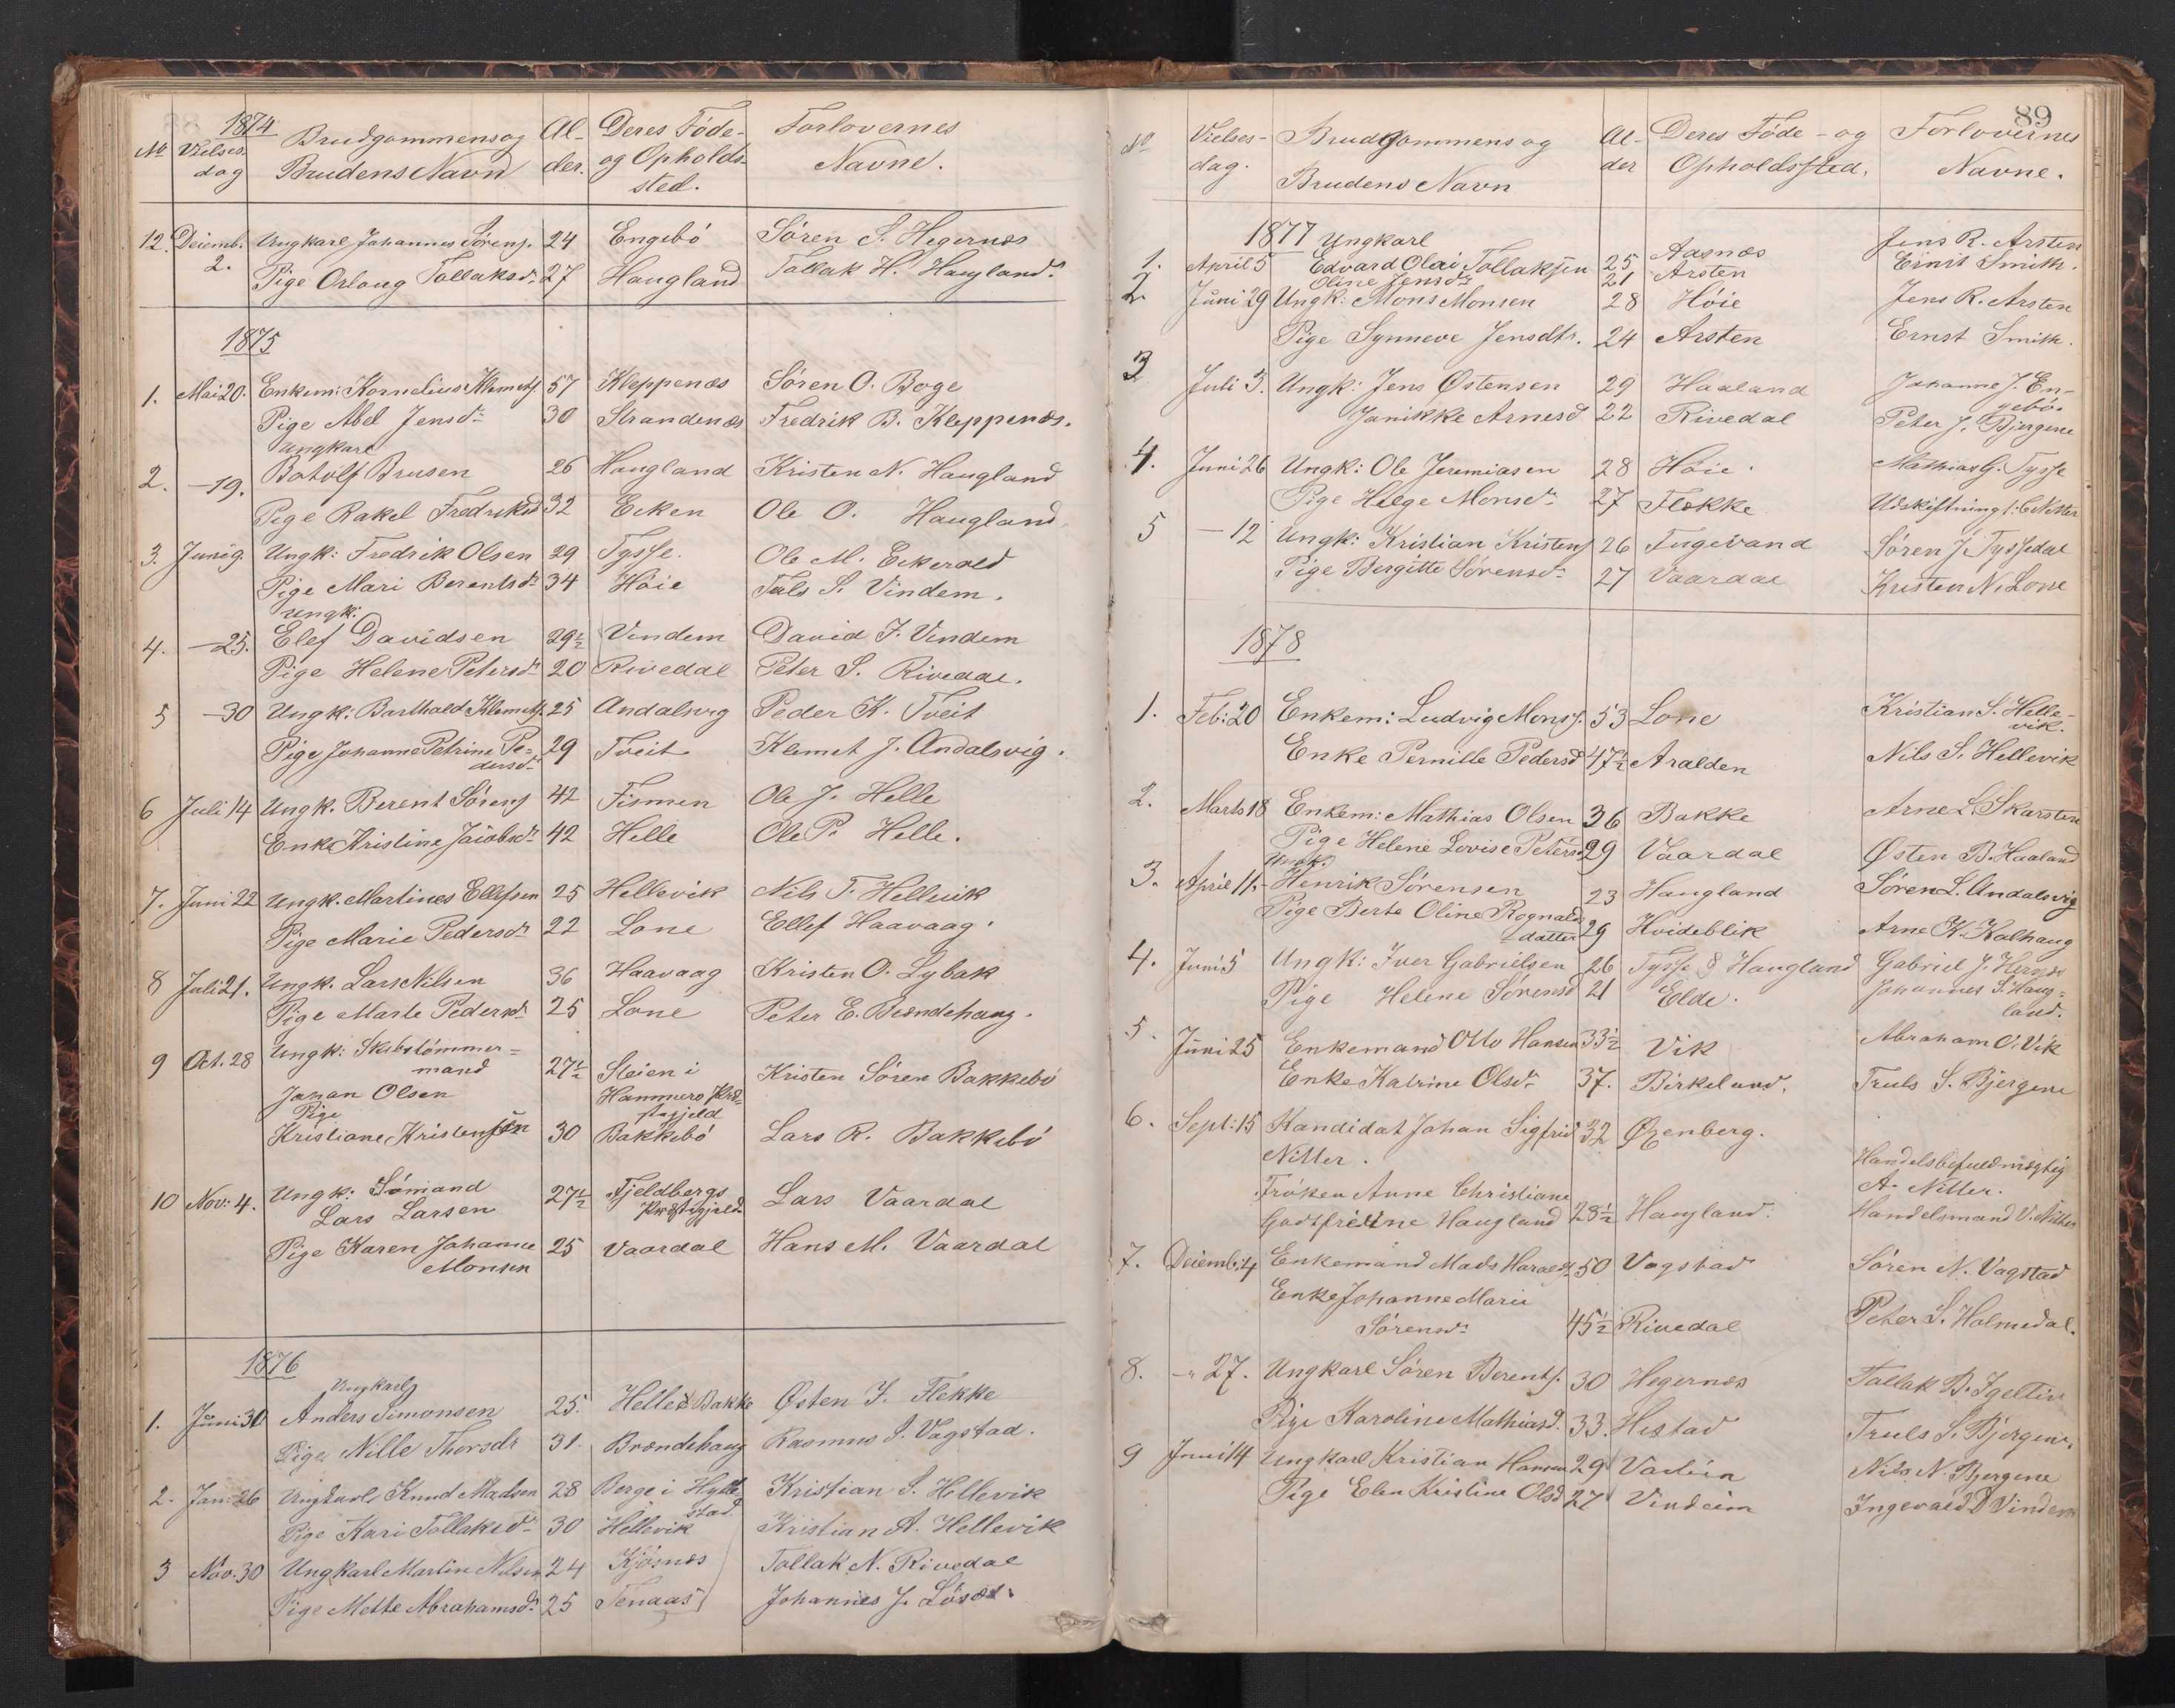 1874
No Vielses- dag Brudgommens og Brudens Navn Al- der. Deres Föde- og Opholds- sted. Forlovernes Navne.
12. Decemb. Ungkarl Johannes Sörens. 24 Engebö Sören S. Hegernæs
2. Pige Orloug Tollaksdr. 27 Haugland Tollak H. Haugland.
1875
1. Mai 20. Enkem: Kornelius Klemets. 57 Kleppenæs Sören O. Boge
Pige Abel Jensdr 30 Strandenæs Fredrik B. Kleppenæs.
Ungkarl
2. — 19. Botolf Brusen 26 Haugland Kristen N. Haugland
Pige Rakel Fredriksd 32 Ecken Ole O. Haugland
3. Juni 9. Ungk: Fredrik Olsen 29 Tysse. Ole M. Eckerold
Pige Mari Berentsdr 34 Höie S. Vindem.
Ungk:
4. — 25. Elef Davidsen 29½ Vindem David J. Vindem
Pige Helene Petersdr 20 Rivedal Peter S. Rivedal.
5 — 30 Ungk: Barthold Klemets. 25 Andalsvig Peder K. Tveit
Pige Johanne Petrine Pe- 29 Tveit Klemet J. Andalsvig.
dersdr
6 Juli 14 Ungk. Berent Sörens 42 Fismen Ole J. Helle
Enke Kristine Jacobsdr 42 Helle Ole P. Helle.
7. Juni 22 Ungk. Martines Ellefsen 25 Hellevik Nils T. Hellevik
Pige Marie Pedersdr 22 Lone Ellef Haavaag.
8 Juli 21. Ungk. Lars Nilsen 36 Haavaag Kristen O. Lybak
Pige Marte Pedersdr 25 Lone Peter E. Brændehaug.
9 Oct. 28 Ungk: Skibstömmer=
mand 27½ Steien i Kristen Sören Bakkebö
Johan Olsen Hammers Præ=
Pige stegjeld
Kristiane Kristensen 30 Bakkebö Lars R. Bakkebö
10 Nov: 4. Ungk: Sömand 27½ Fjeldbergs Lars Vaardal
Lars Larsen Præstegjeld
Pige Karen Johanne 25 Vaardal Hans M. Vaardal
Monsen
1876
Ungkarl
1. Juni 30 Anders Simonsen 25. Helle & Bakke Østen J. Flekke
Pige Nille Thorsdr 31. Brændehaug Rasmus S. Vagstad.
2. Jan: 26 Ungkarl Knud Madsen 28 Berge i Hylle- Kristian S. Hellevik
stad
Pige Kari Tollaksdr 30 Hellevik Kristian A. Hellevik
3 Nov. 30 Ungkarl Martin Nilsen 24 Kjösnæs Tollak N. Rivedal
Pige Mette Abrahamsdr 25 Tenaas Johannes J. Löset.
89
No Vielses- dag. Brudgommens og Brudens Navn Al- der Deres Föde- og Opholdssted. Forlovernes Navne.
1877 Ungkarl
1. April 5 Edvard Olai Tollaksen 25 Aasnæs Jens R. Arsten
Oline Jensdr 21 Arsten Ernst Smith.
2. Juni 29 Ungk: Mons Monsen 28 Höie Jens R. Arsten
Pige Synneve Jensdtr. 24 Arsten Ernst Smith.
3 Juli 3. Ungk: Jens Østensen 29 Haaland Johanne J. En-
gebö.
Janikke Arnesd 22 Rivedal Peter J. Bjergene
4. Juni 26 Ungk: Ole Jeremiasen 28 Höie. Mathias G. Tysse
Pige Helge Monsdr 27 Flekke Udskiftningsf: C Nitter
5 — 12 Ungk: Kristian Kristens 26 Tngevand Sören J. Tyssedal
Pige Bergitte Sörensdr 27 Vaardal Kristen N. Lone
1878
1. Feb: 20 Enkem: Ludvig Mons. 53 Lone Kristian S. Helle-
vik.
Enke Pernille Pedersd 47½ Aralden Nils S. Hellevik
2. Marts 18 Enkem: Mathias Olsen 36 Bakke Arne L. Skarsten
Pige Helene Lovise Petersd 29 Vaardal Østen B. Haaland
Ungk:
3. April 11. Henrik Sörensen 23 Haugland Sören L. Andalsvig
Pige Berte Oline Rognalds
datter 29 Hvideblik Arne K. Kalhaug
4. Juni 5 Ungk: Iver Gabrielsen 26 Tysse & Haugland Gabriel J. Hernæs
Pige Helene Sörensd 21 Elde. Johannes S. Haug=
land.
5. Juni 25 Enkemand Otto Hansen 33½ Vik Abraham O. Vik
Enke Katrine Olsdr 37. Birkeland. Truls S. Bjergene
6. Sept: 15 Kandidat Johan Sigfrid 32 Øxenberg.
Nitter. Handelsbefuldmægtig
A. Nitter.
Fröken Anne Christiane
Godtfridine Haugland 28½ Haugland. Handelsmand V. Nitter
7. Decemb: 4 Enkemand Mads Haralds 50 Vagstad Sören N. Vagstad
Enke Johanne Marie
Sörensdr 45½ Rivedal Peter S. Holmedal.
8. -"- 27. Ungkarl Sören Berents. 30 Hegernæs Tollak B. Igeltiv
Pige Karoline Mathiasd. 33. Hestad Truls S. Bjergene.
9 Juni 14 Ungkarl Kristian Hansen 29 Nils N. Bjergene
Pige Elen Kristine Olsd 27 Vindeim Ingevald D Vindem